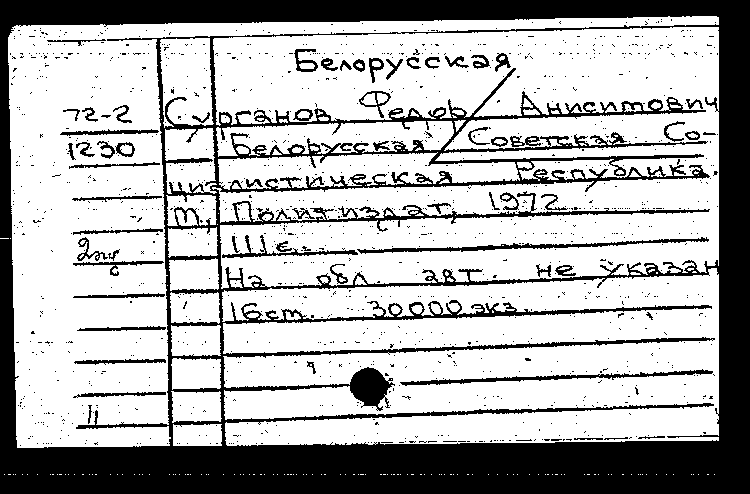 Белорусская
72-2 Сурганов, Федор Анисимович
1230 Белорусская Советская Со-
циалистическая Республика.
М., Политиздат, 1972.
111 с.
2 экз
На обл. авт. не указан
16 ст. 30000 экз.
11